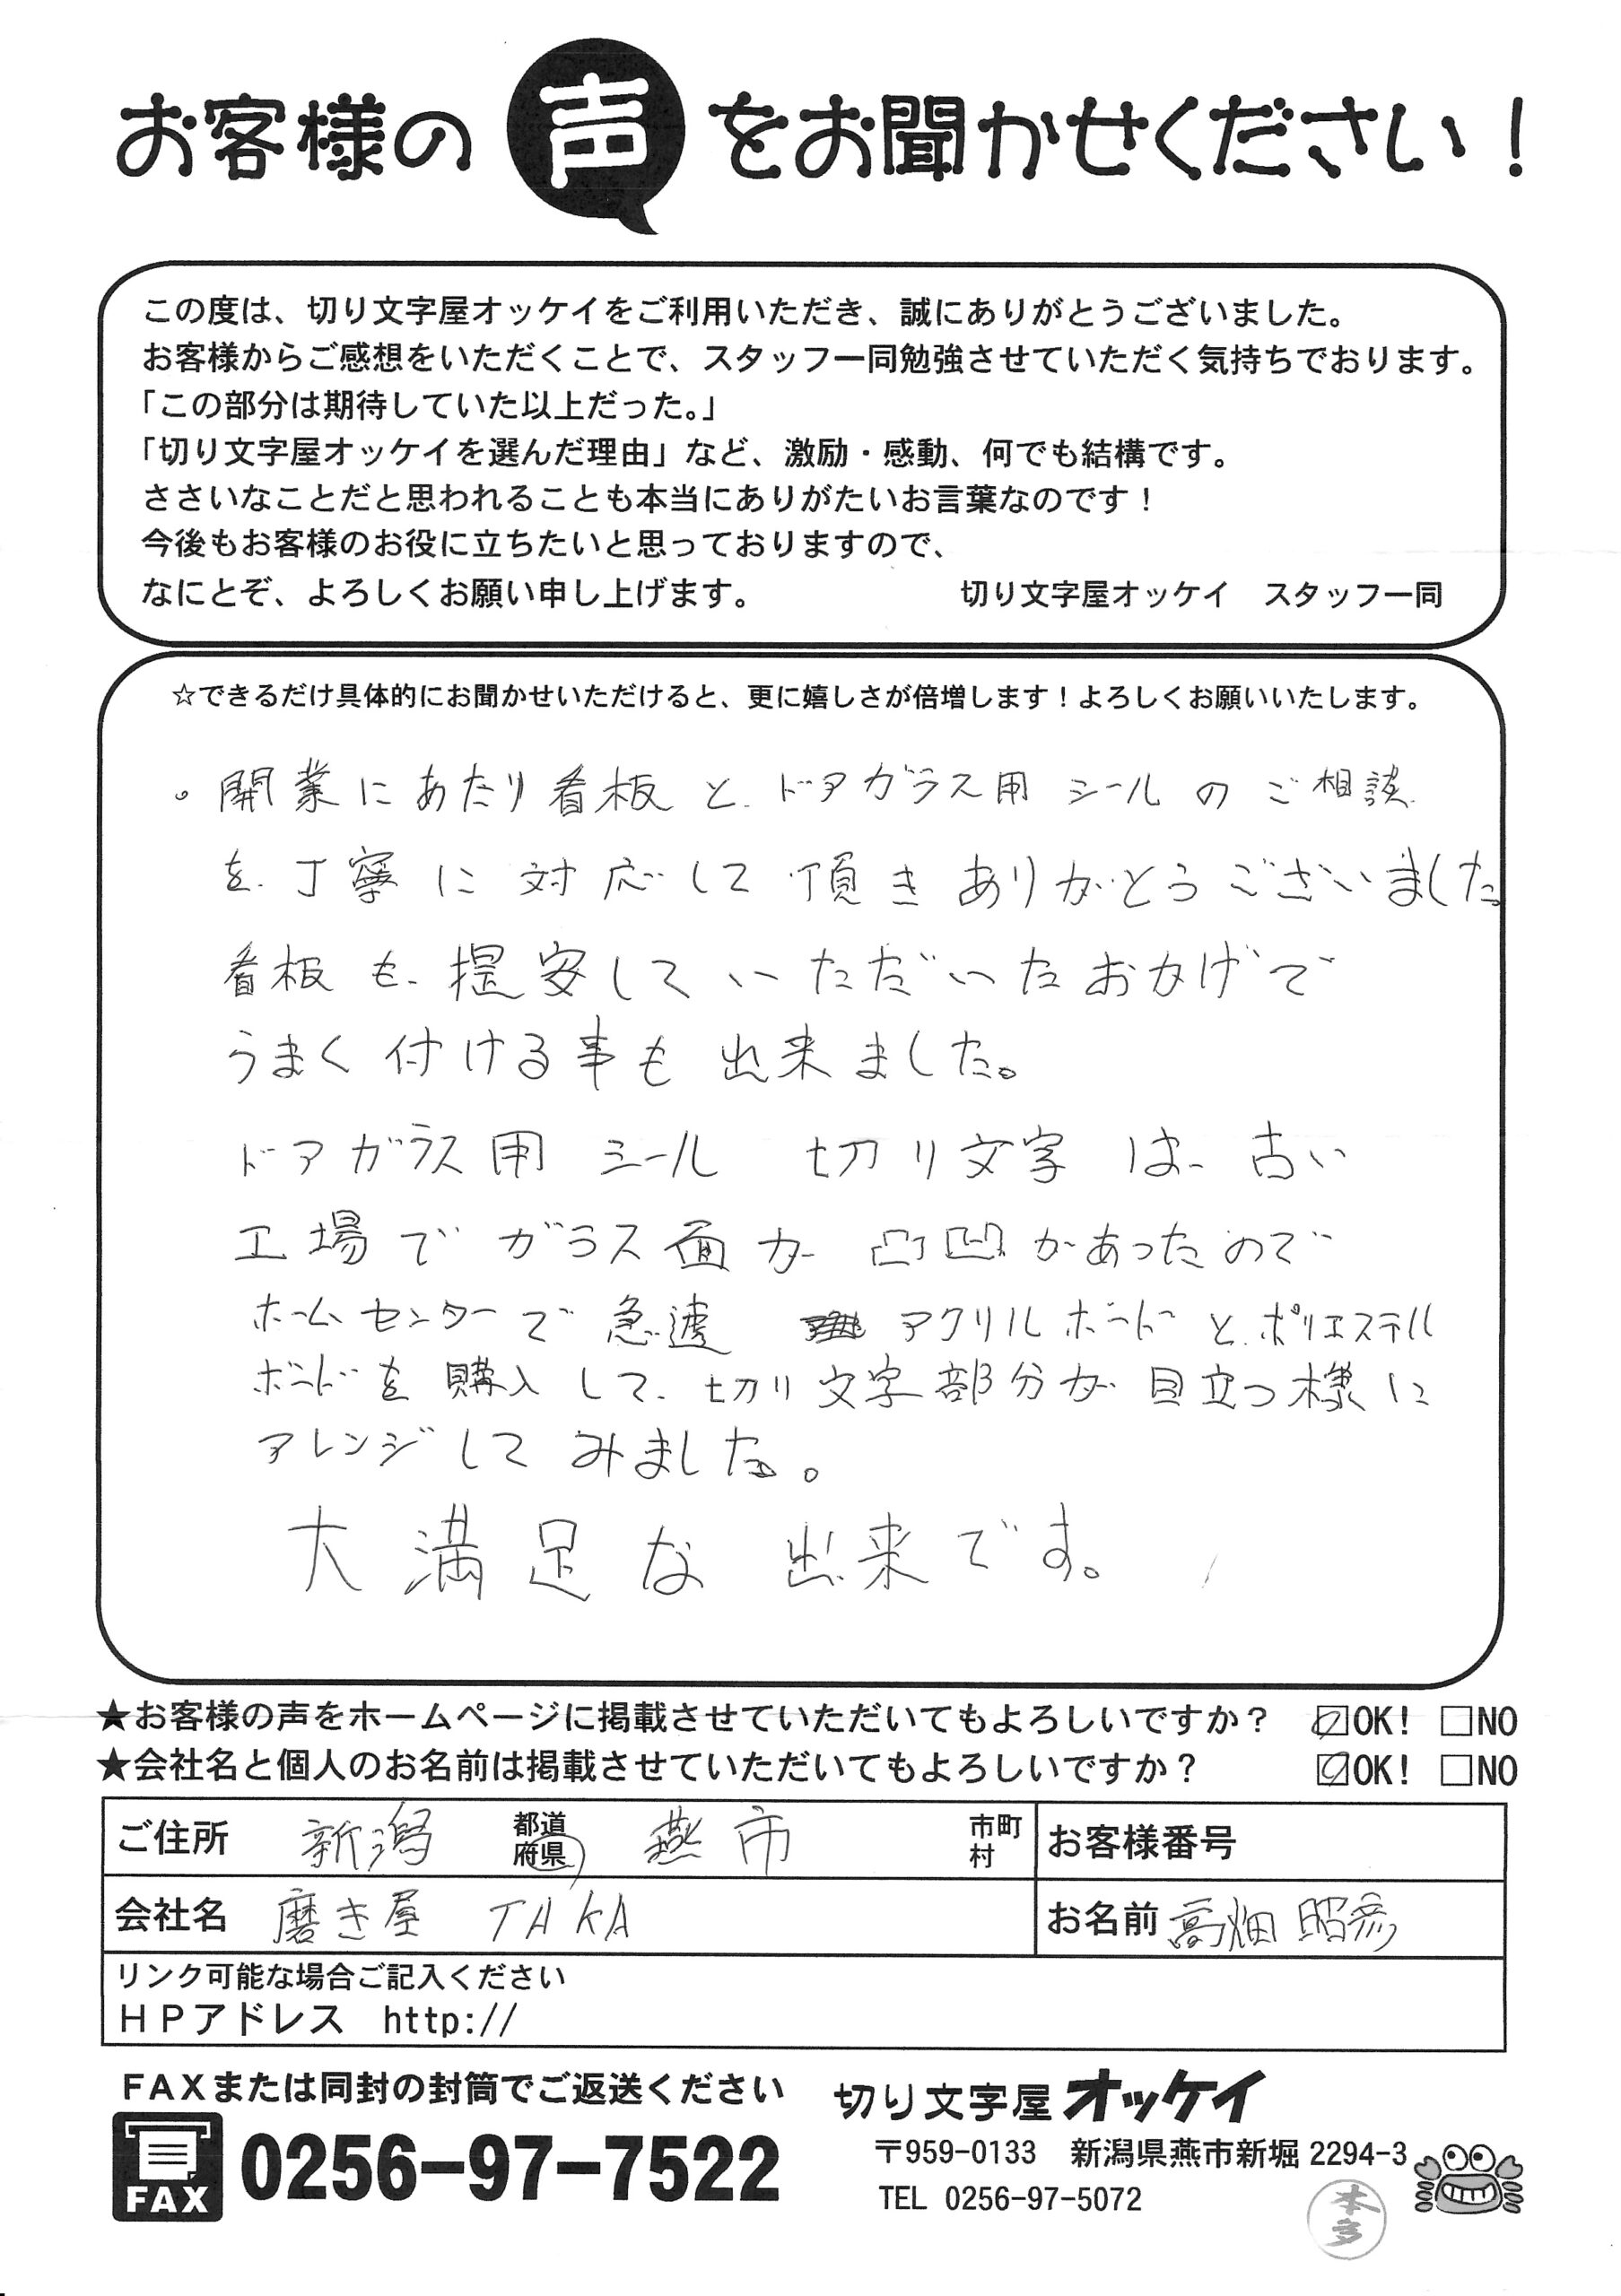 お客様の声をお聞かせください!
この度は、切り文字屋オッケイをご利用いただき、誠にありがとうございました。
お客様からご感想をいただくことで、スタッフ一同勉強させていただく気持ちでおります。
「この部分は期待していた以上だった。」
「切り文字屋オッケイを選んだ理由」など、激励・感動、何でも結構です。
ささいなことだと思われることも本当にありがたいお言葉なのです!
今後もお客様のお役に立ちたいと思っておりますので、
なにとぞ、よろしくお願い申し上げます。 切り文字屋オッケイ スタッフ一同
☆できるだけ具体的にお聞かせいただけると、更に嬉しさが倍増します!よろしくお願いいたします。
。開業にあたり看板と、ドアガラス用シールのご相談
を、丁寧に対応して頂きありがとうございました。
看板も、提案していただいたおかげで
うまく付ける事も出来ました。
ドアガラス用シール 切り文字は、古い
工場でガラス面が凸凹があったので
ホームセンターで急遽 アクリルボードと、ポリエステル
ボンドを購入して、切り文字部分が目立つ様に
アレンジしてみました。
大満足な出来です。
★お客様の声をホームページに掲載させていただいてもよろしいですか? ☑OK! □NO
★会社名と個人のお名前は掲載させていただいてもよろしいですか? ☑OK! □NO
ご住所 新潟 都道府県 燕市 市町村 お客様番号
会社名 磨き屋 TAKA お名前 高畑 昭彦
リンク可能な場合ご記入ください
HPアドレス http://
FAXまたは同封の封筒でご返送ください
FAX 0256-97-7522
切り文字屋オッケイ
〒959-0133 新潟県燕市新堀2294-3
TEL 0256-97-5072
本多